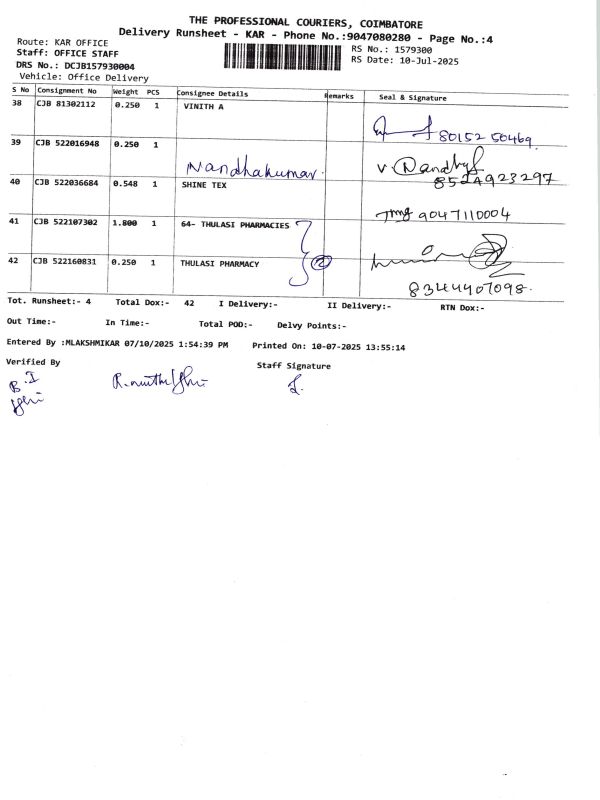 THE PROFESSIONAL COURIERS, COIMBATORE
Delivery Runsheet - KAR - Phone No.:9047080280 - Page No.:4
Route: KAR OFFICE
RS No.: 1579300
Staff: OFFICE STAFF
RS Date: 10-Jul-2025
DRS No.: DCJB157930004
Vehicle: Office Delivery
S No Consignment No Weight PCS Consignee Details Remarks Seal & Signature
38 CJB 81302112 0.250 1 VINITH A
80152 50469.
39 CJB 522016948 0.250 1
Nandhakumar. V. Nandhy
8524923297
40 CJB 522036684 0.548 1 SHINE TEX
9047110004
41 CJB 522107302 1.800 1 64- THULASI PHARMACIES
42 CJB 522160831 0.250 1 THULASI PHARMACY 2
8344407098.
Tot. Runsheet:- 4 Total Dox:- 42 I Delivery:- II Delivery:- RTN Dox:-
Out Time:- In Time:- Total POD:- Delvy Points:-
Entered By :MLAKSHMIKAR 07/10/2025 1:54:39 PM Printed On: 10-07-2025 13:55:14
Verified By Staff Signature